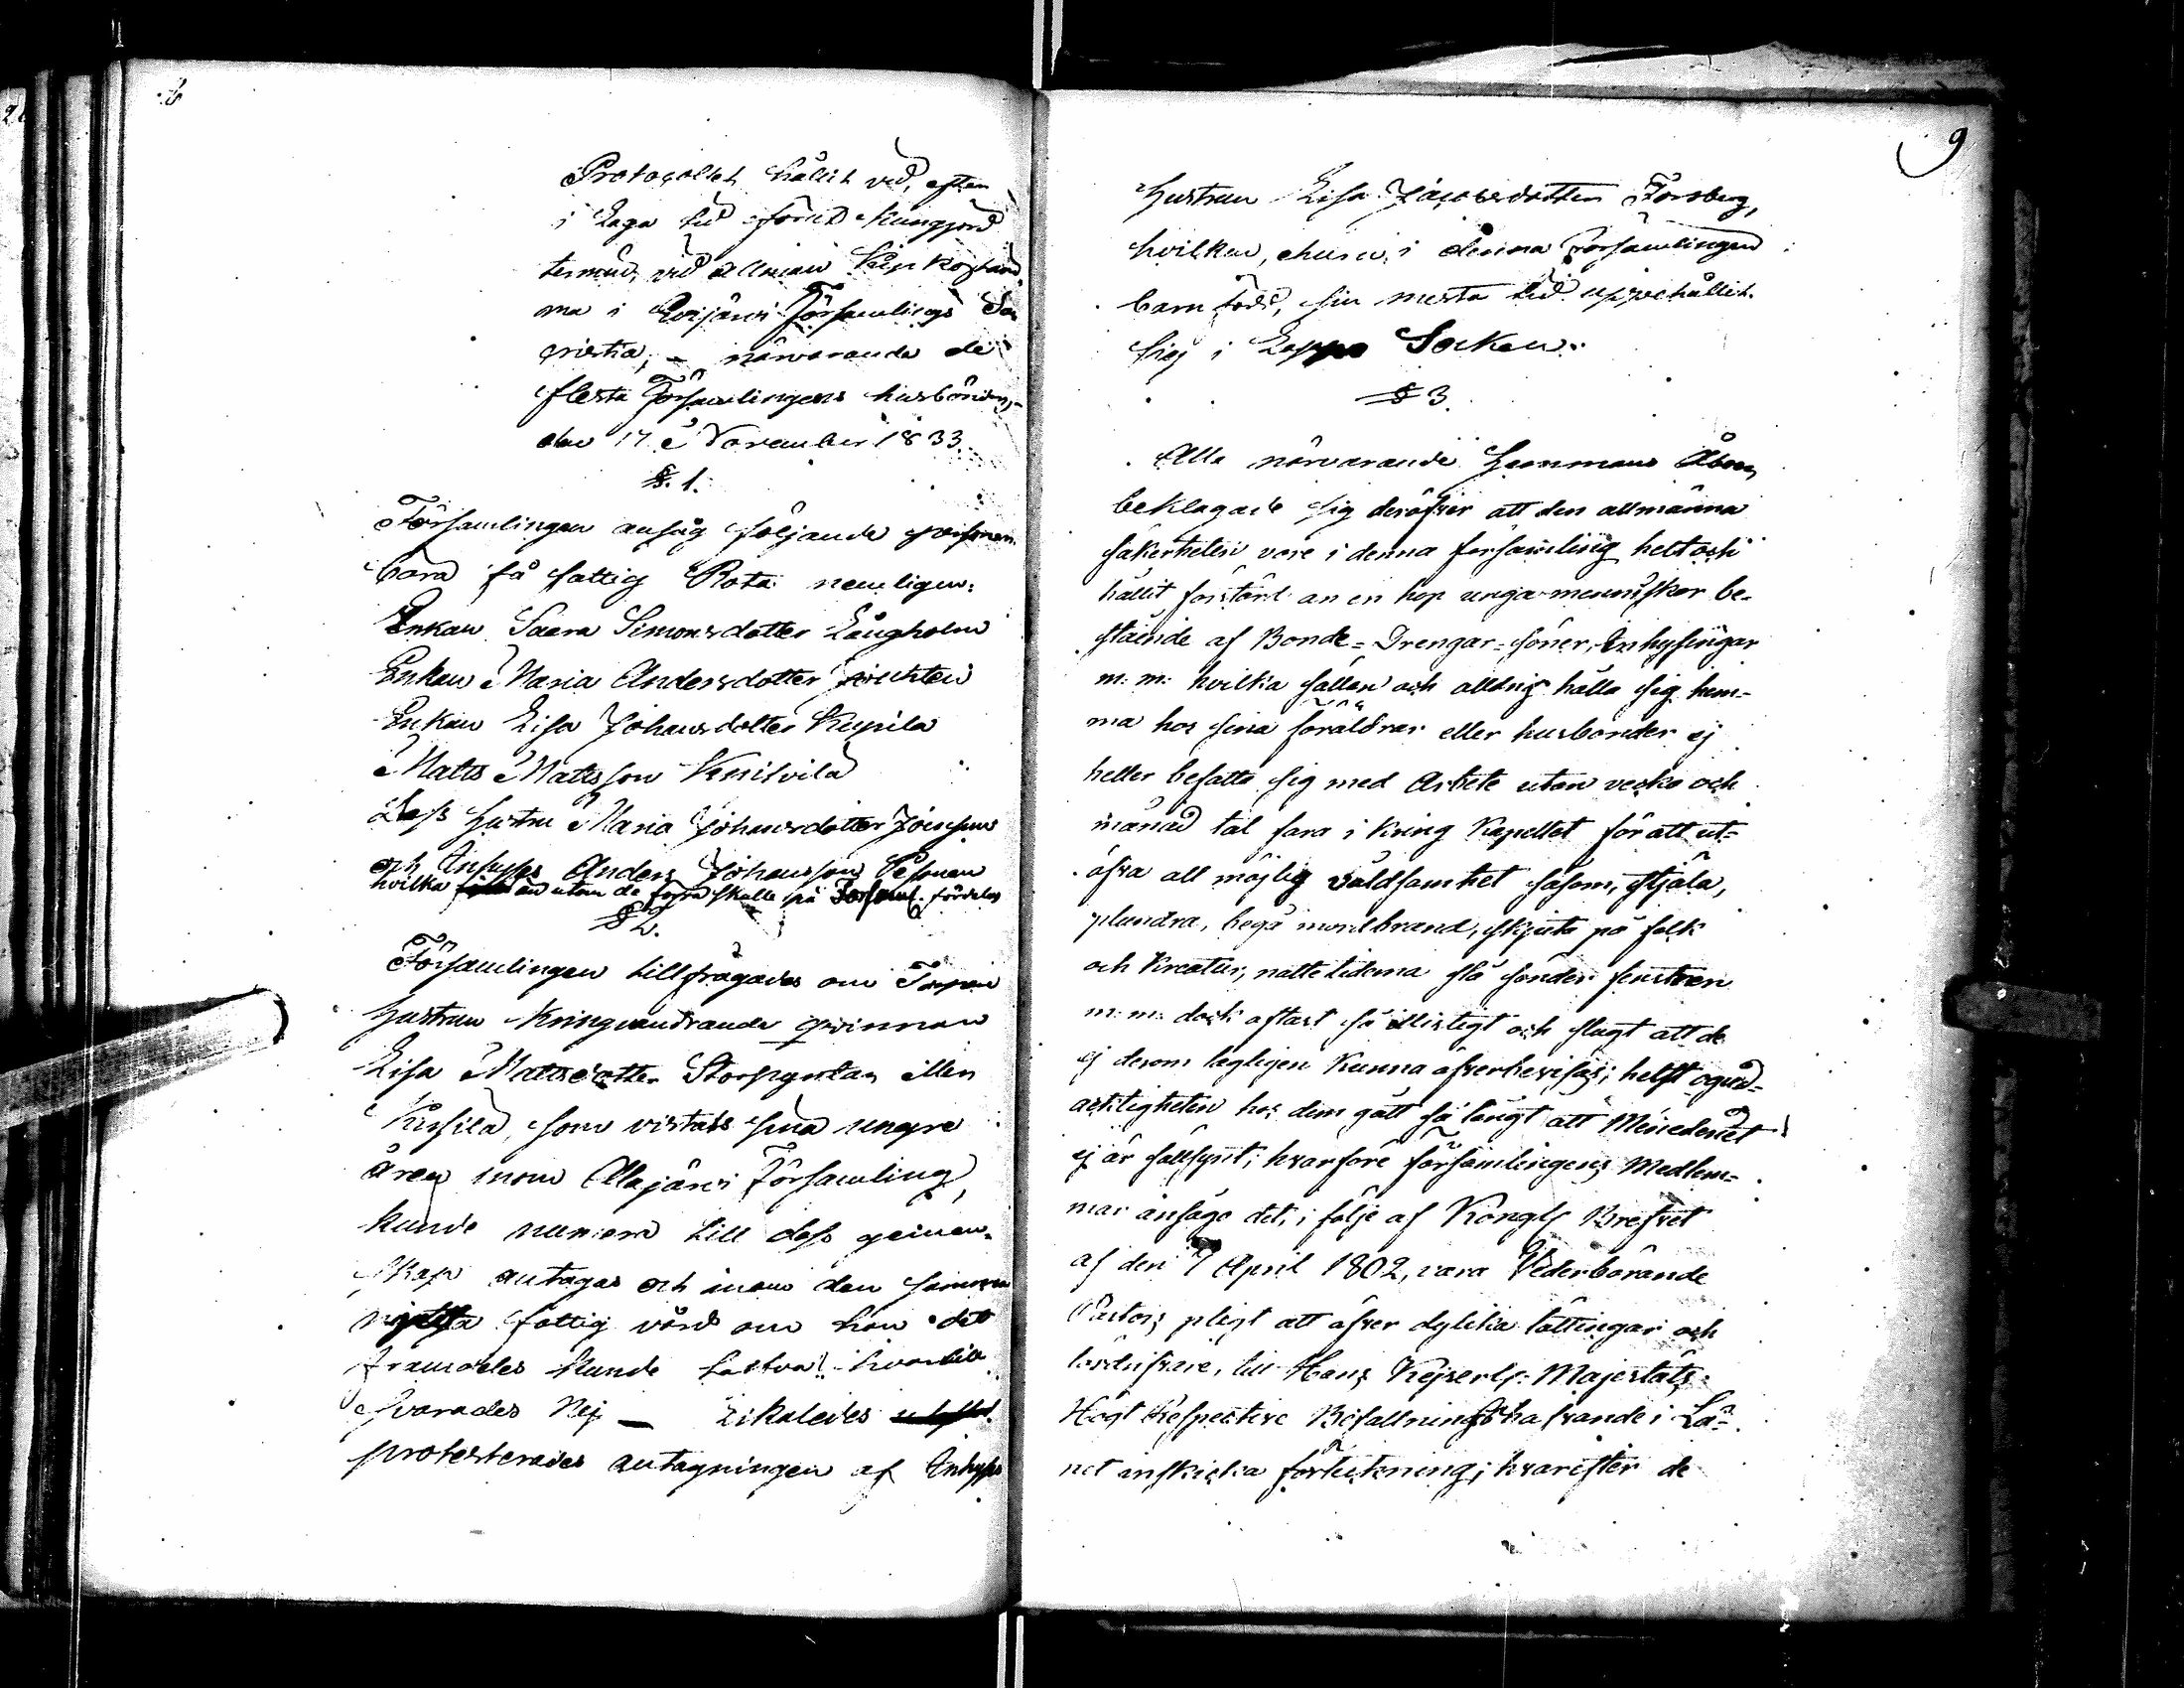 Protocollet hållit vid, efter
i Laga tid förut kungjord
termin, vid allmän
ma i Evijärvi Församlings Sa
cristia, – närvarande de
flesta Församlingens husbönder,
den 17 November 1833.
§. 1.
Församlingen ansåg följande personer
böra få fattig Rota nemligen:
Enkan Saara Simonsdotter Långholm
Enkan Maria Andersdotter
Enkan Lisa Johansdotter Kupila
Matts Mattsson
Dess hustru Maria Johansdotter
och Inhyses Anders Johansson Pesonen
hvilka än utom de förra skulle på Församl. fördelas
§ 2.
Församlingen tillfrågades om
hustrun kringvandrande qvinnan
Lisa Mattsdotter eller
som vistats sina yngre
åren inom Alajärvi Församling,
kunde numera till dess gemen-
skap antagas och inom den samma
njutta fattig vård om hon det
framdeles kunde hvartill
svarades Nej — Likaledes
protesterades antagningen af Inhyses
9
Hustrun Lisa Jacobsdotter Forsberg,
hvilken, ehuru i denna Församlingen
barn född, sin mesta tid uppehållit
sig i Lappo Socken.
§ 3.
Alla närvarande Hemmans Åboer
beklagade sig deröfver att den allmänna
säkerheten vore i denna församling helt och
hållit förstörd an en hop unga menniskor be-
stående af Bonde- Drengar- söner, Inhysingar
m: m: hvilka sällan och alldrig hålla sig hem-
ma hos sina föräldrar eller husbönder ej
heller befatta sig med Arbete utan vecko och
månad tal fara i kring Kapellet för att ut-
öfva all möjlig våldsamhet såsom, stjäla,
plundra, begå mordbrand, skjuta på folk
och kreatur, nattetiderna slå sönder fenstren
m: m: dock oftast så illistigt och slugt att de
ej derom lagligen kunna öfverbevisas; helst ogud-
aktigheten hos dem gått så långt att Menederiet
ej är sällsynt; hvarföre församlingens Medlem-
mar ansågo det, i följe af Kongl Brefvet
af den 7 April 1802, vara Vederbörande
Pastors pligt att öfver dylika lättingar och
till Hans Kejserl. Majestäts
Högt Respective Befallningshafvande i Lä-
net inskicka förtekning; hvarefter de